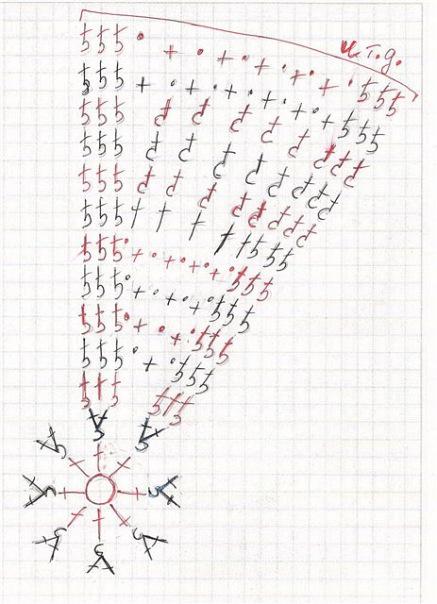 и.т.д.